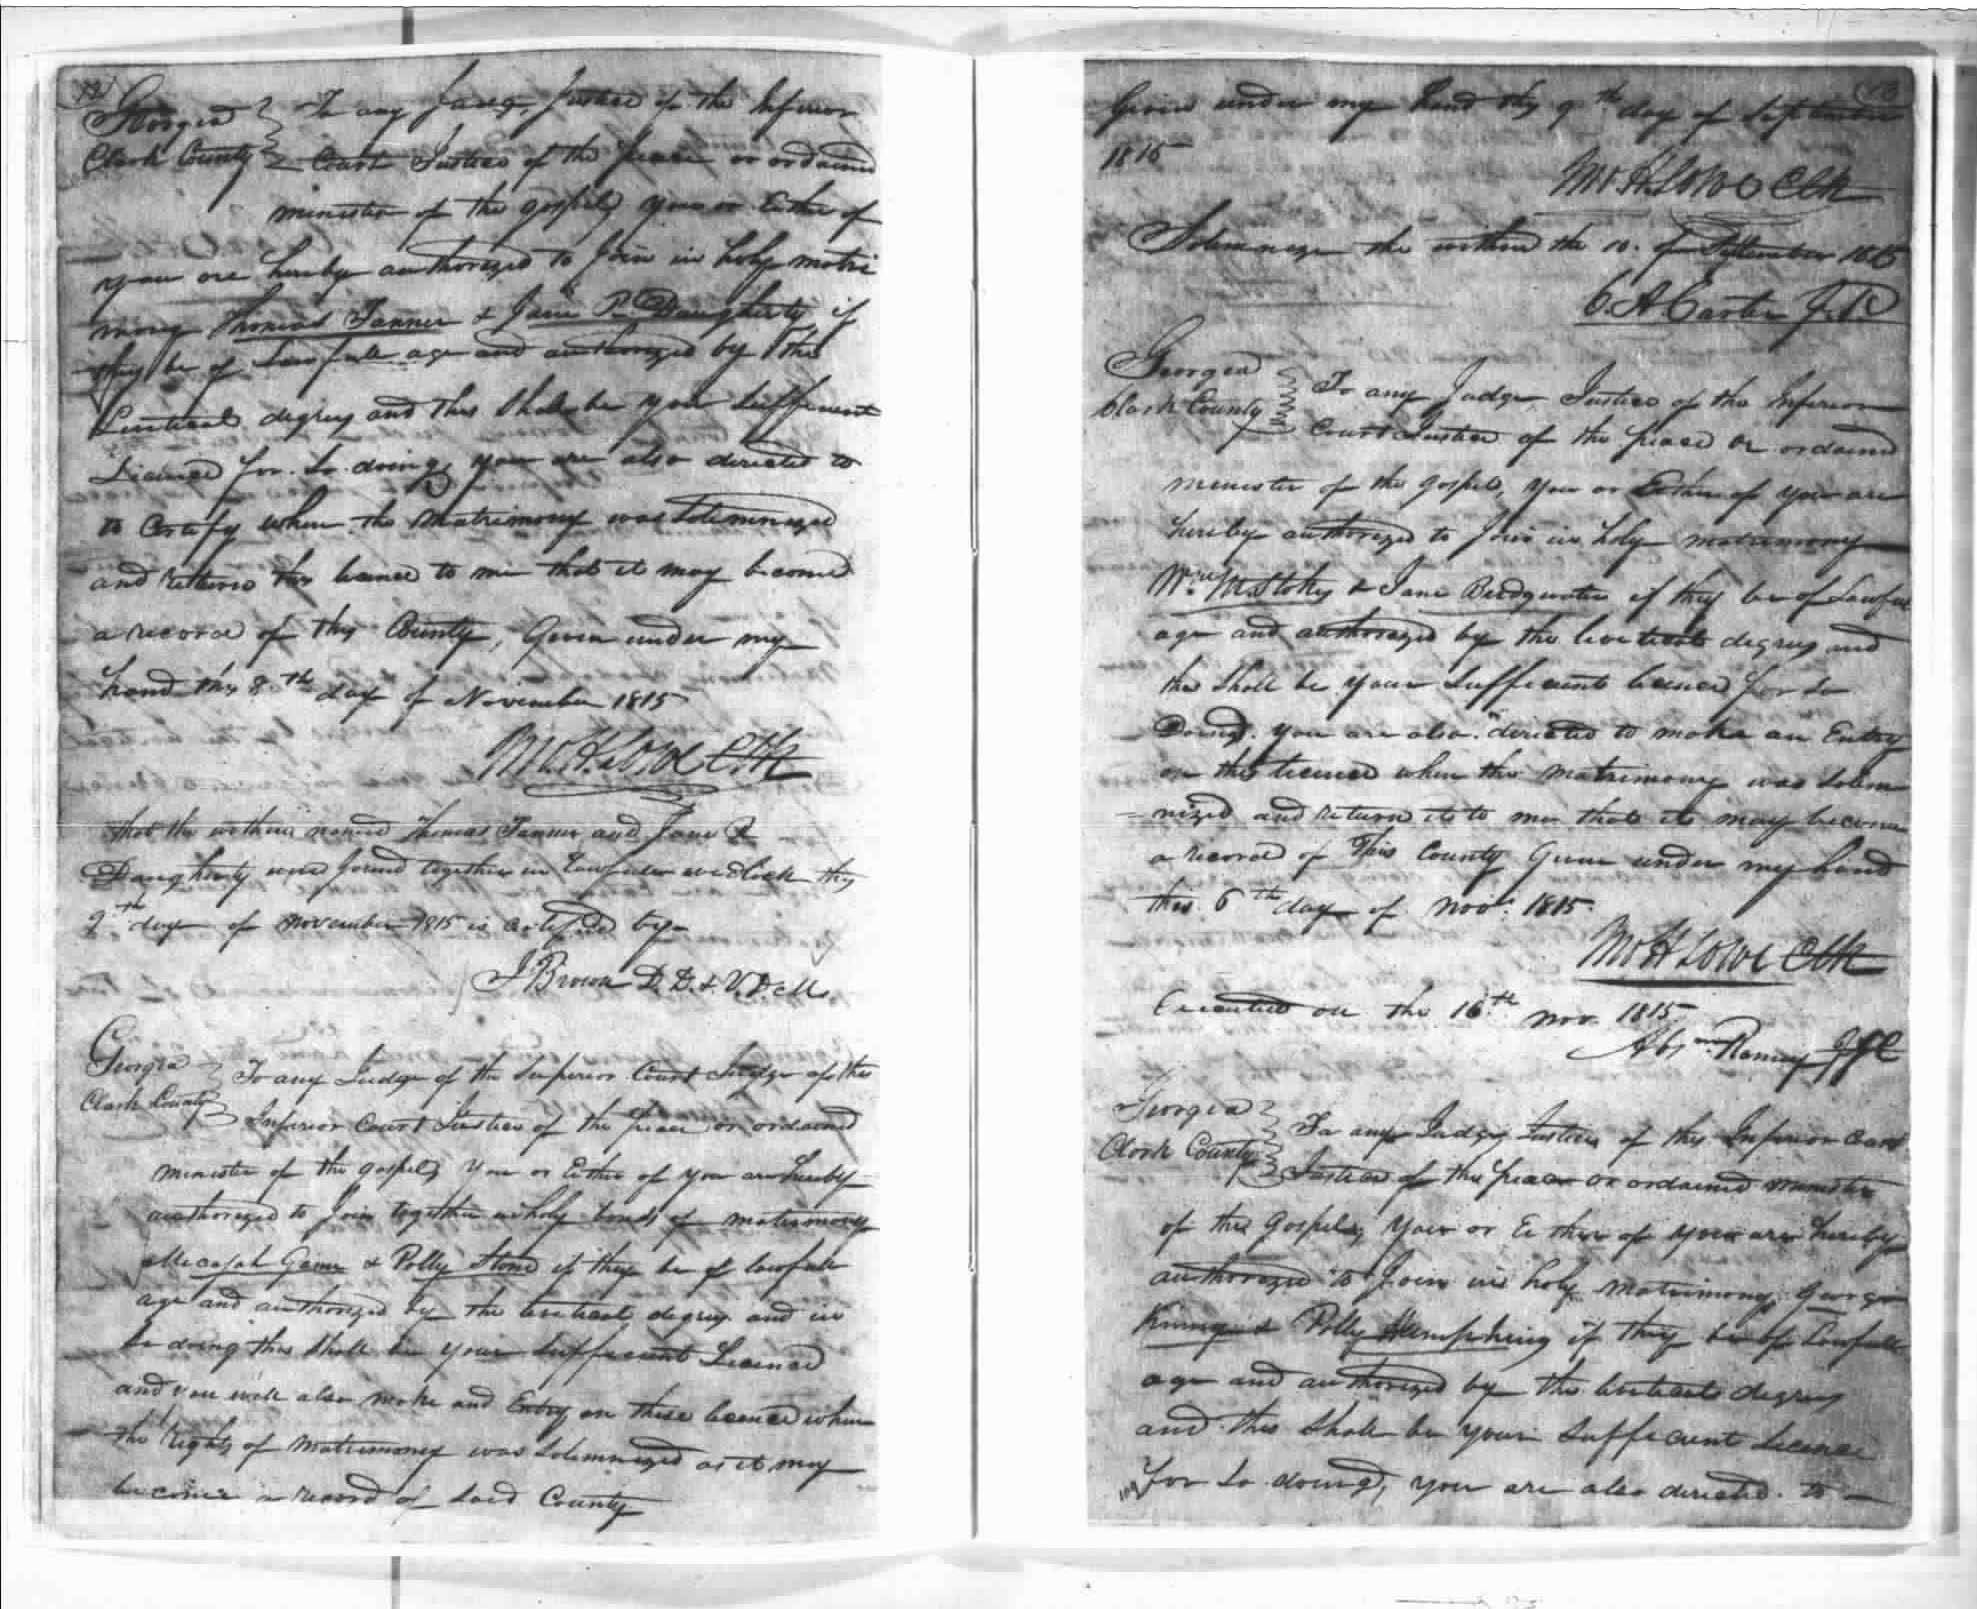 Georgia
Clark County
To any Judge, Justice of the Inferior
Court Justice of the peace or ordained
minister of the gospel, you or Either of
you are hereby authorized to Join in holy matri
mony Thomas Tanner & Jane R Daugherty if
they be of Lawfull age and authorized by the
Leviticul degrees and this Shall be your Sufficient
Licence for So doing, you are also directed to
to Certify when the Matrimony was Solemnized
and return this licence to me that it may become
a record of this County, Given under my
hand this 8th day of November 1815
Mo. H. Lowe Clk
that the within named Thomas Tanner and Jane R
Daugherty were joined together in Lawful wedlock this
9th day of November 1815 is certifyed by
J Brown D. D. & V. D. M.
Georgia
Clark County
To any Judge of the Superior Court Judge of the
Inferior Court Justice of the peace or ordained
minister of the gospel, you or Either of you are hereby
authorized to Join together in holy bonds of matrimony
Micajah Gann & Polly Stone if they be of lawfull
age and authorized by the leviticul degrees and in
So doing this Shall be your Sufficient Licence
and you will also make and Entry on these licence when
the rights of Matrimoney was Solemnized as it may
become a record of Said County
Given under my hand this 9th day of September
1815
Mo. H. Lowe Clk
Solemnize the within the 10. of September 1815
C A Carter J. P.
Georgia
Clark County
To any Judge, Justice of the Inferior
Court Justice of the peace or ordained
minister of the gospel, you or Either of you are
hereby authorized to Join in holy matrimony
Wm M. Stokes & Jane Bridgwater if they be of Lawful
age and authorized by the leviticul degrees and
this Shall be your Sufficient licence for So
Doing. you are also directed to make an Entry
on this licence when the matrimony was Solem
=nized and return it to me that it may become
a record of This County Given under my hand
this 6th day of Novr. 1815.
Mo H Lowe Clk
Executed on the 16th Nov. 1815
Abrm Ramey
Georgia
Clark County
To any Judge, Justice of the Inferior Court
Justice of the peace or ordained minister
of the Gospel, you or Either of you are hereby
authorized to Join in holy matrimony George
Kinney & Polly Hemphring if they be of Lawfull
age and authorized by the leviticul degrees
and this Shall be your Sufficient licence
for So doing, you are also directed to